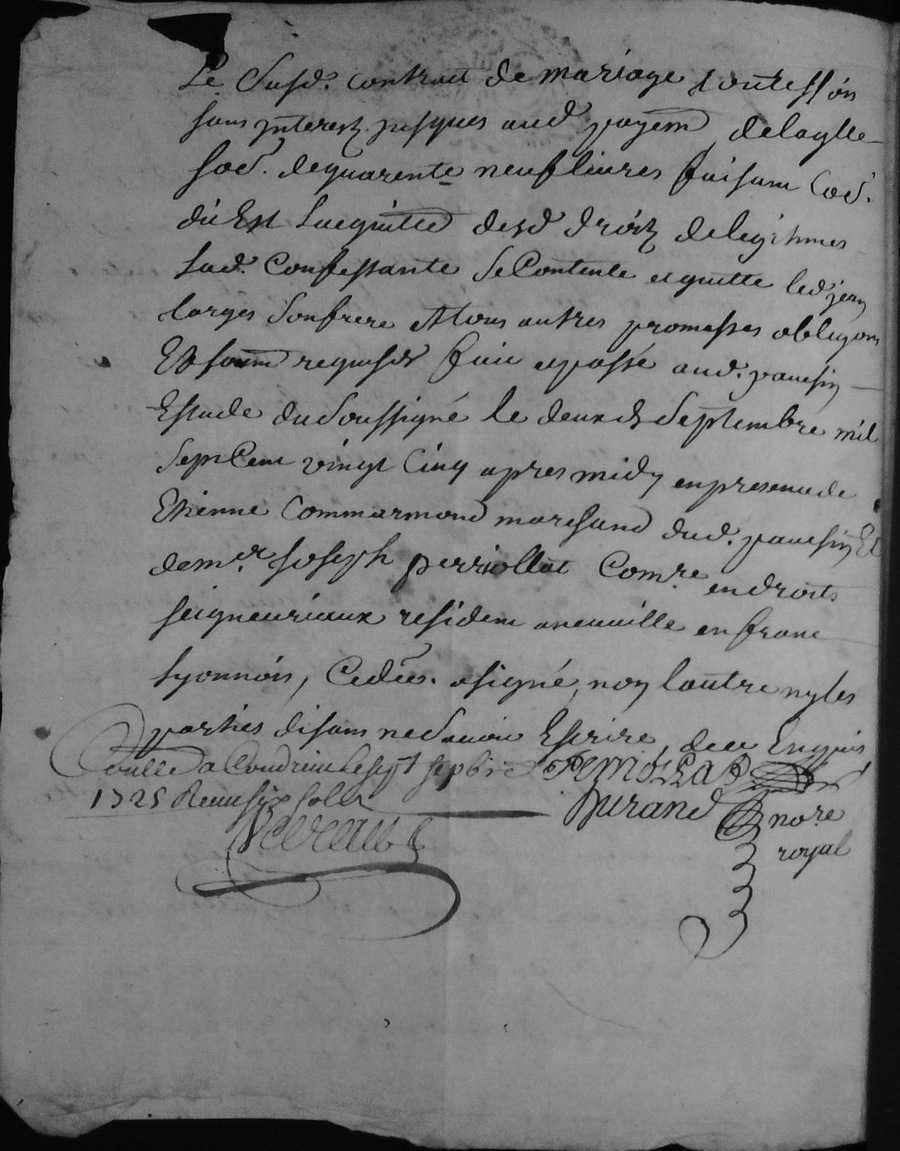 Le Susd. contrait de mariage
sans jnterest jusques aud payem delaqlle
sad. dequarente neuf livres faisant
dit Est Lacquitté desd droitz delegitimes
Lad. Confessante seContente et quitte led jean
larges Sonfrere Et tous autres promesses obligaons
Et soum requises fait et passé aud. pauesin
Estude du Soussigné le deux de Septembre mil
Sept Cent vingt Cinq apres midy enpresence de
Etienne Commarmond marchand dud. pauesin Et
demer. Joseph perriollat Comre en droits
seigneuriaux resident aneuville en franc
lyonnois, asigné, non lautre ny les
parties disant ne Scavoir Escrire, Enquis
Coullé a Condrieu le sept sepbre PerriOLLAt
1725 Receu six solz Durand nore
royal